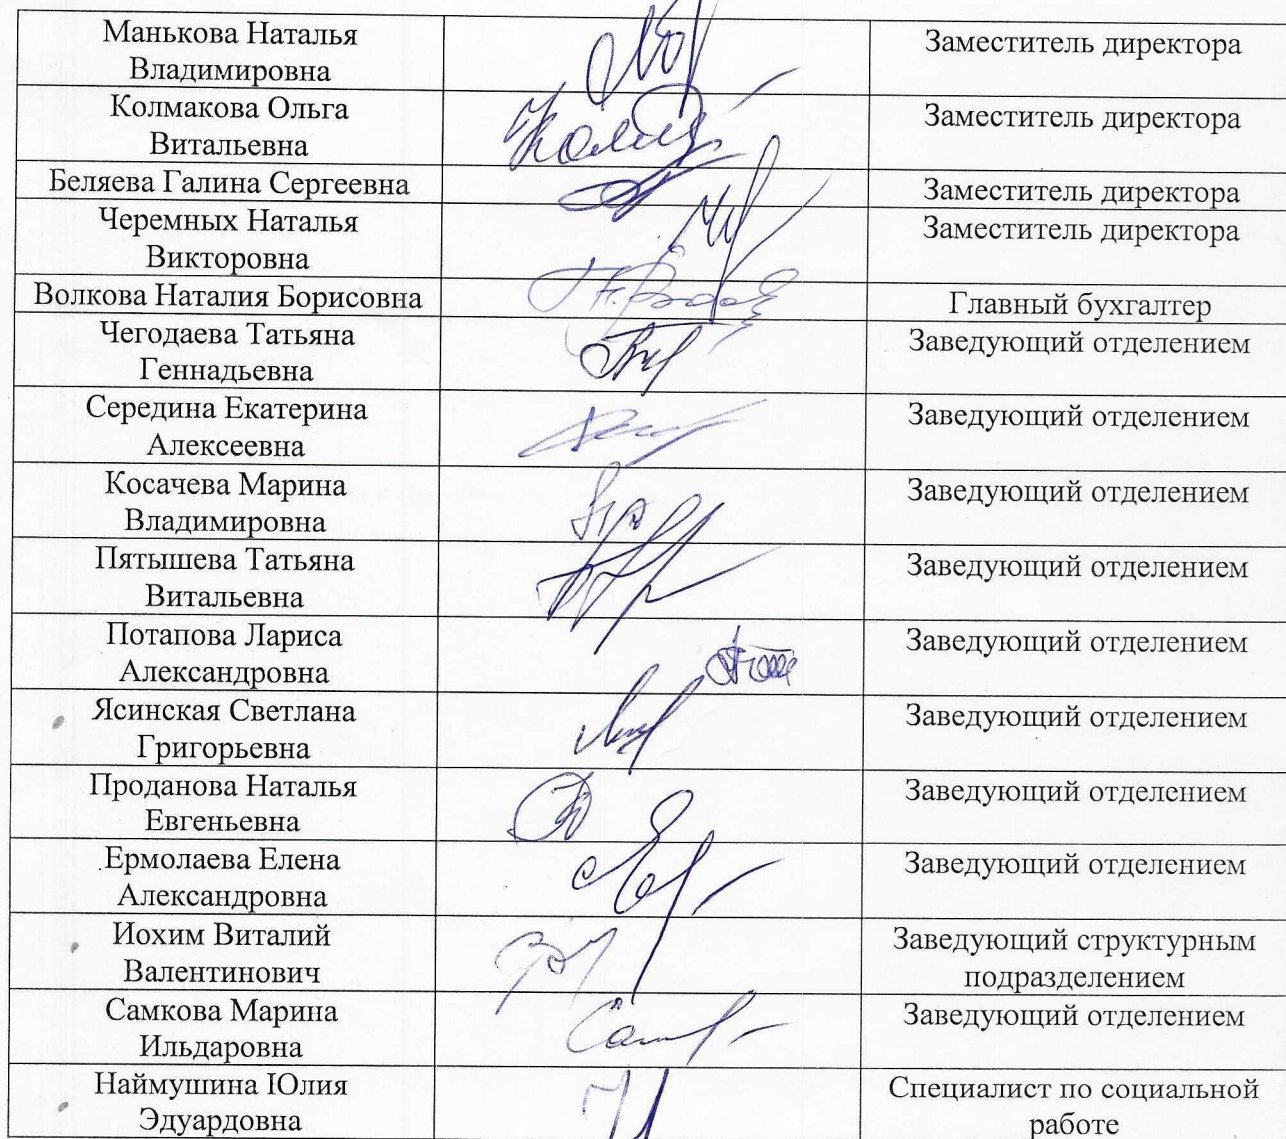 Манькова Наталья
Владимировна
Заместитель директора
Колмакова Ольга
Витальевна
Заместитель директора
Беляева Галина Сергеевна
Заместитель директора
Черемных Наталья
Викторовна
Заместитель директора
Волкова Наталия Борисовна
Главный бухгалтер
Чегодаева Татьяна
Геннадьевна
Заведующий отделением
Середина Екатерина
Алексеевна
Заведующий отделением
Косачева Марина
Владимировна
Заведующий отделением
Пятышева Татьяна
Витальевна
Заведующий отделением
Потапова Лариса
Александровна
Заведующий отделением
Ясинская Светлана
Григорьевна
Заведующий отделением
Проданова Наталья
Евгеньевна
Заведующий отделением
Ермолаева Елена
Александровна
Заведующий отделением
Иохим Виталий
Валентинович
Заведующий структурным
подразделением
Самкова Марина
Ильдаровна
Заведующий отделением
Наймушина Юлия
Эдуардовна
Специалист по социальной
работе